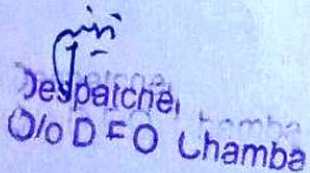 Despatcher
O/o D F O Chamba